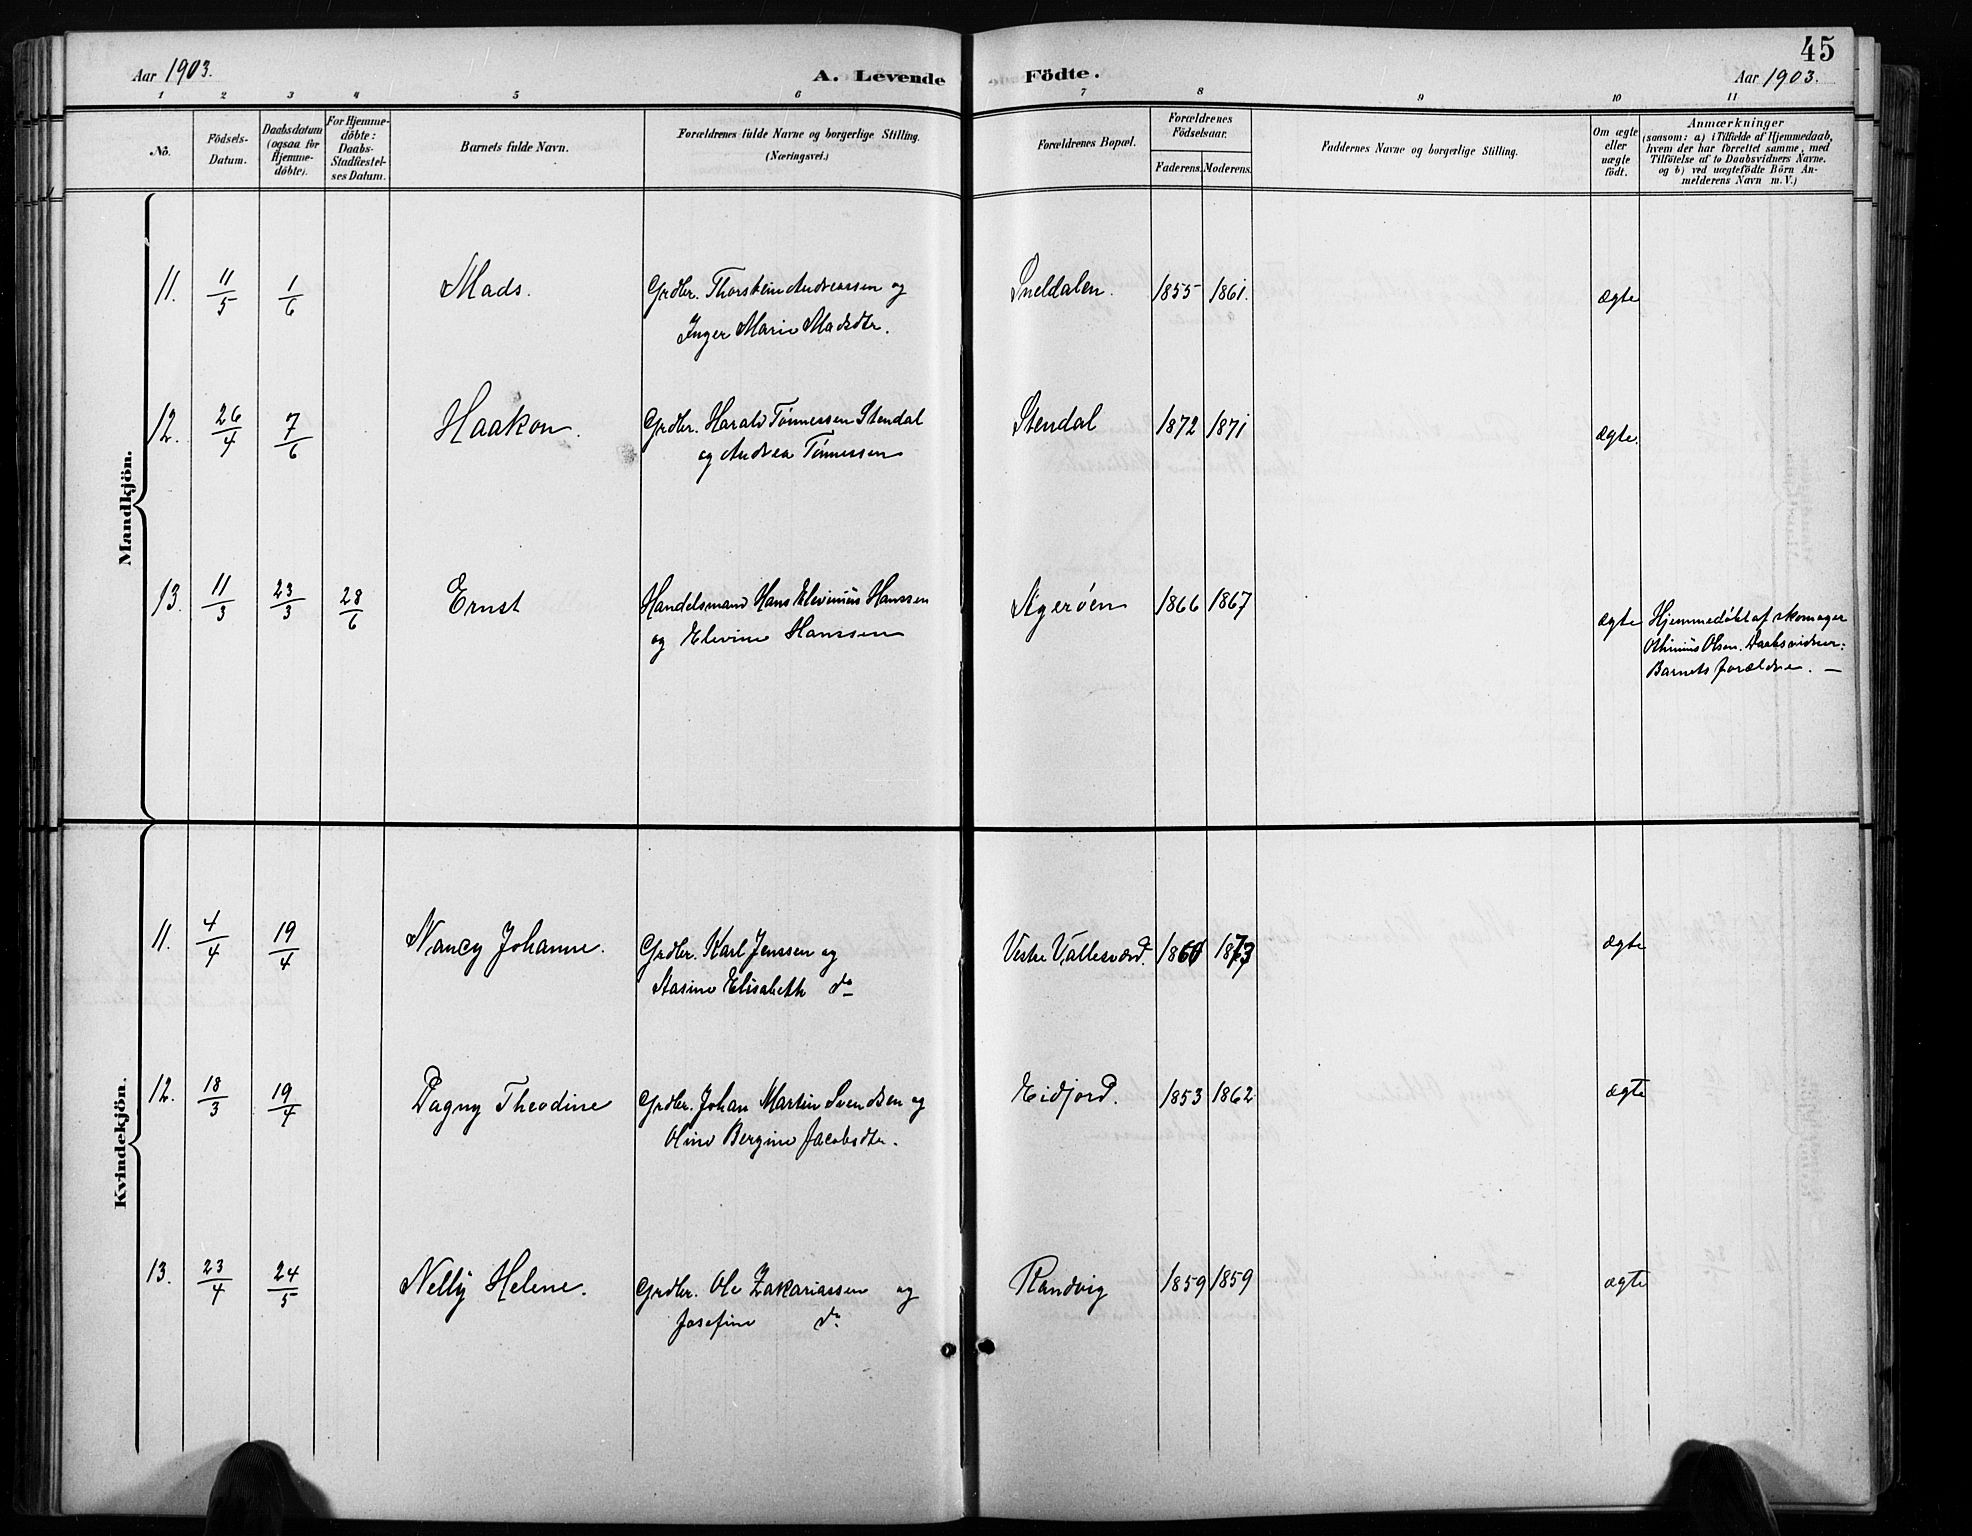 45
Aar 1903. A. Levende Födte. Aar 1903.
1 2 3 4 5 6 7 8 9 10 11
No. Födsels-Datum. Daabsdatum (ogsaa for Hjemme-döbte). For Hjemme-döbte: Daabs-Stadfæstel-ses Datum. Barnets fulde Navn. Forældrenes fulde Navne og borgerlige Stilling. (Næringsvei.) Forældrenes Bopæl. Forældrenes Födselsaar. Faderens. Moderens. Faddernes Navne og borgerlige Stilling. Om ægte eller uægte födt. Anmærkninger
(saasom: a) i Tilfælde af Hjemmedaab,
hvem der har forrettet samme, med
Tilföielse af to Daabsvidners Navne.
og b) ved uægtefödte Börn An-
melderens Navn m. V.)
Mandkjön.
11. 11/5 1/6 Mads. Grdbr. Thorstein Andreassen og Sneldalen. 1855 1861. ægte
Inger Marie Madsdtr.
12. 26/4 7/6 Haakon. Grdbr. Harald Tønnessen Stendal Stendal 1872 1871 ægte.
og Andrea Tønnessen
13. 11/3 23/3 28/6 Ernst Handelsmand Hans Elevinius Hanssen Agerøen 1866 1867 ægte Hjemmedøbt af skomager
og Elevine Hanssen Olsen. Daabsvidner:
Barnets forældre. —
Kvindekjön.
11. 4/4 19/4 Nancy Johanne. Grdbr. Karl Jenssen og Vestre Vallesværd. 1860 1873 ægte
Aasine Elisabeth do
12. 18/3 19/4 Dagny Theodine Grdbr. Johan Martin Svendsen og Eidjord. 1853 1862 ægte
Oline Bergine Jacobsdtr.
13. 23/4 24/5 Nelly Helene. Grdbr. Ole Zakariassen og Randvig 1859 1859 ægte
Josefine do